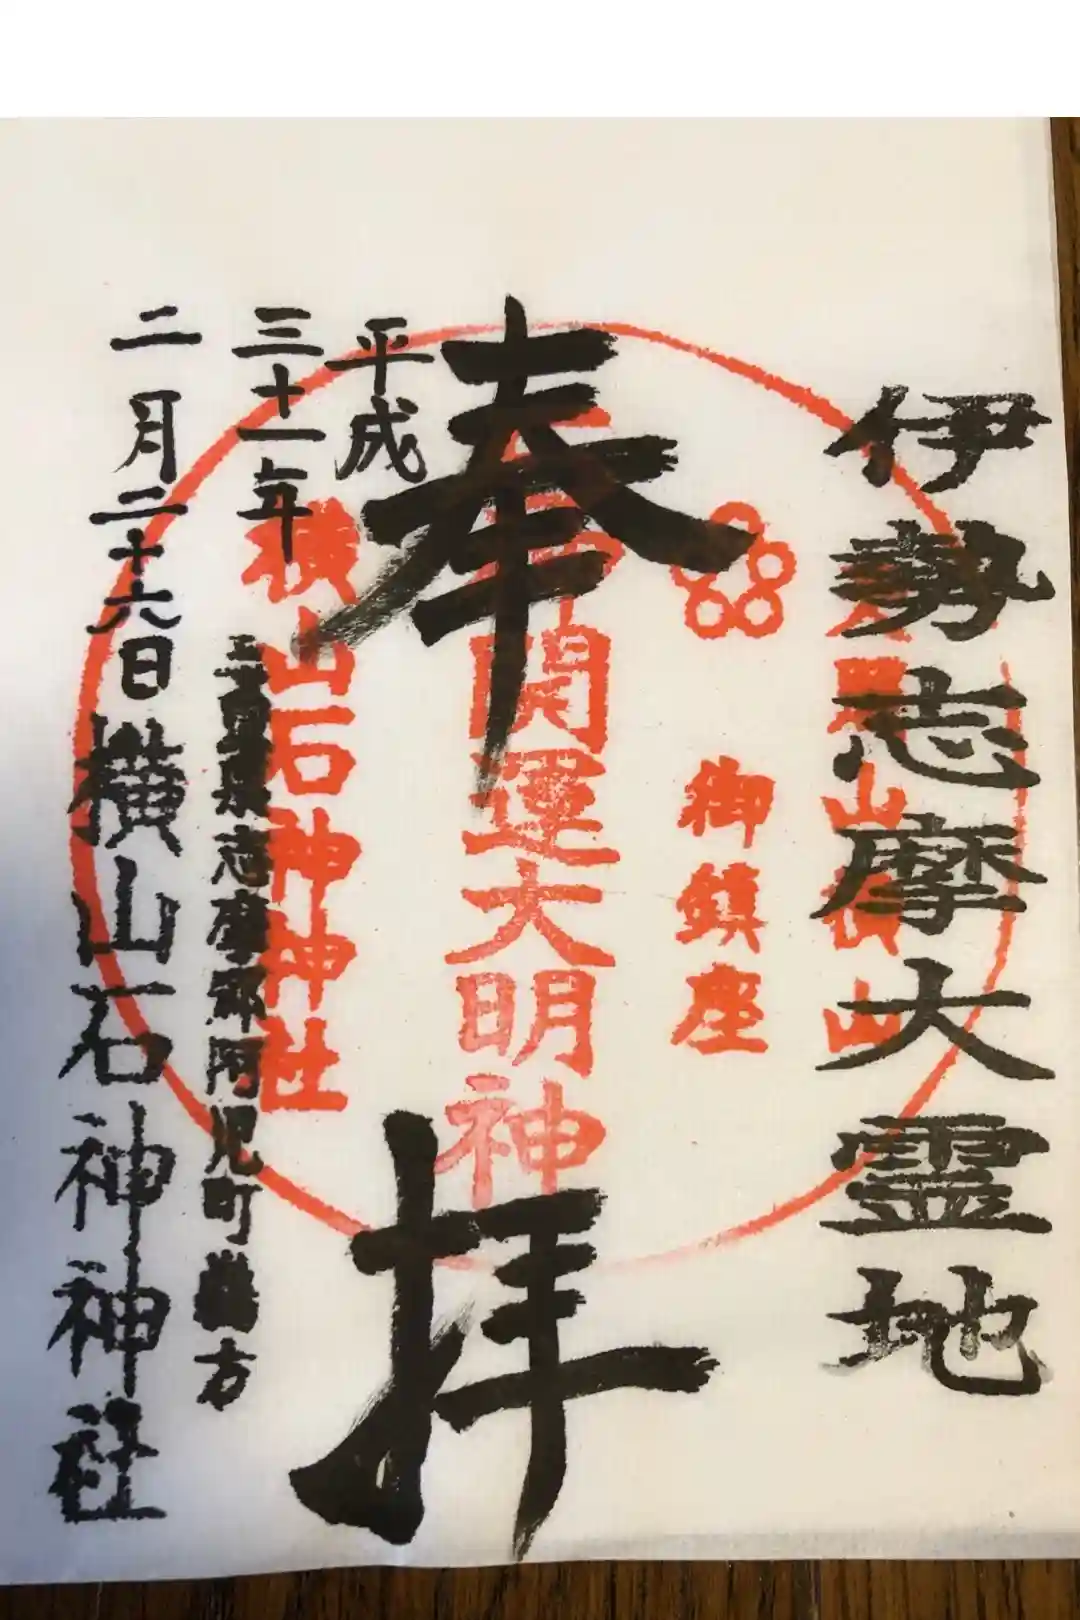 伊勢志摩大霊地
山横山
御鎮座
開運大明神
奉拝
横山石神神社
平成
三十一年
二月二十六日
三重県志摩郡阿児町鵜方
横山石神神社